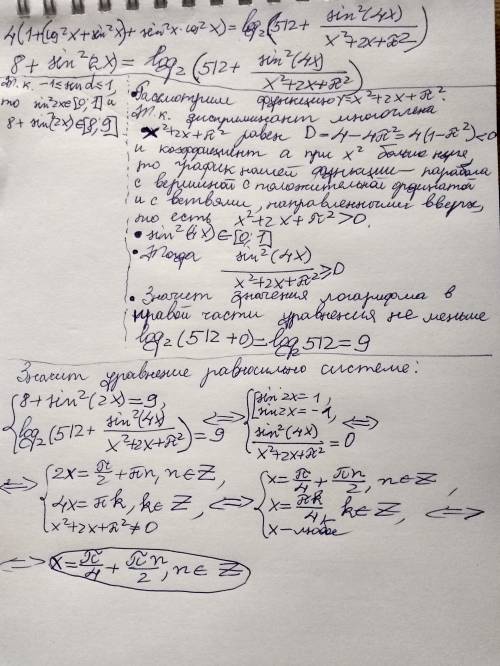 4(1+cos²x+sin²x)+sin²x·cos²x)=log₂(512+ sin²(4x)/(x²+2x+π²))
8+sin²(2x)=log₂(512+ sin²(4x)/(x²+2x+π²))
Т.к. -1≤sinα≤1,
то sin²2x∈[0;1] и
8+sin²(2x)∈[8;9]
Рассмотрим функцию Y=x²+2x+π².
Т.к. дискриминант многочлена
x²+2x+π² равен D=4-4π²=4(1-π²)<0
и коэффициент a при x² больше нуля,
то график нашей функции – парабола
с вершиной с положительной ординатой
и с ветвями, направленными вверх,
то есть x²+2x+π²>0.
• sin²(4x)∈[0;1]
• Тогда sin²(4x)/(x²+2x+π²)≥0
• Значит значения логарифма в
правой части уравнения не меньше
log₂(512+0)=log₂512=9
Значит уравнение равносильно системе:
{8+sin²(2x)=9, log₂(512+ sin²(4x)/(x²+2x+π²))=9 <=> {[sin2x=1, sin2x=-1, sin²(4x)/(x²+2x+π²)=0 <=>
<=> {2x=π/2+πn, n∈Z, 4x=πk, k∈Z, x²+2x+π²≠0 <=> {x=π/4+πn/2, n∈Z, x=πk/4, k∈Z, x-любое <=>
<=> x=π/4+πn/2, n∈Z